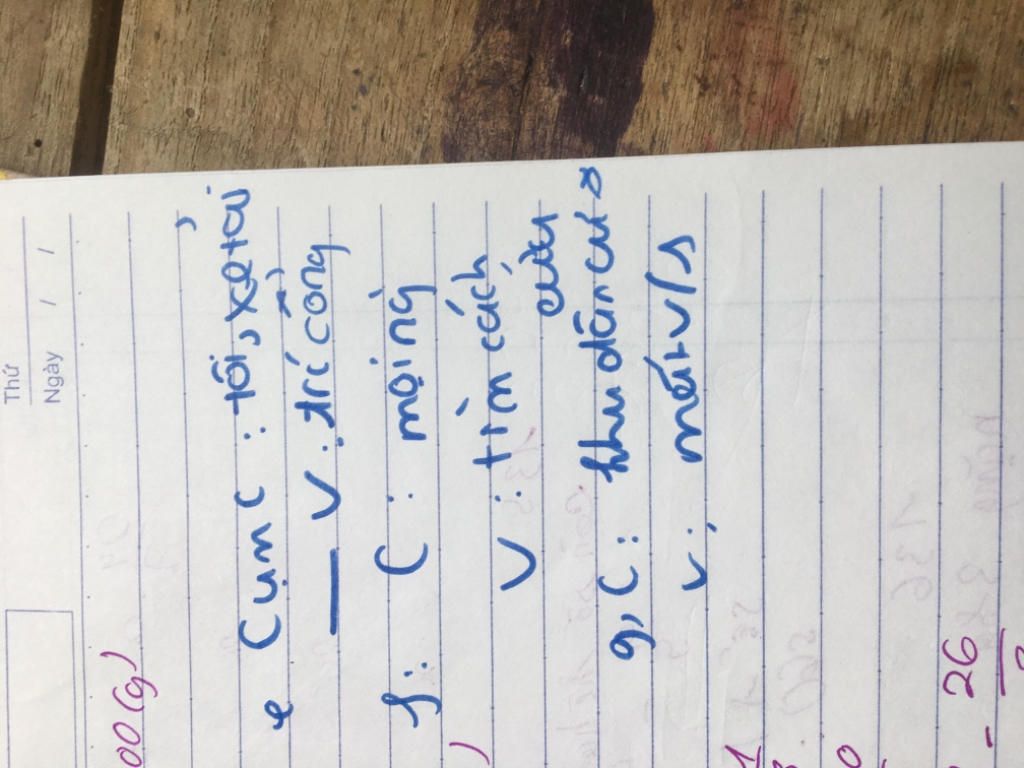 Thứ
Ngày / /
00(g)
e Cụm C: tôi, xe tải
— V: trí cổng
f: C: mọi ng
V: tìm cách
cứu
g, C: khu dân cư
V: mất
)
1
0
- 26